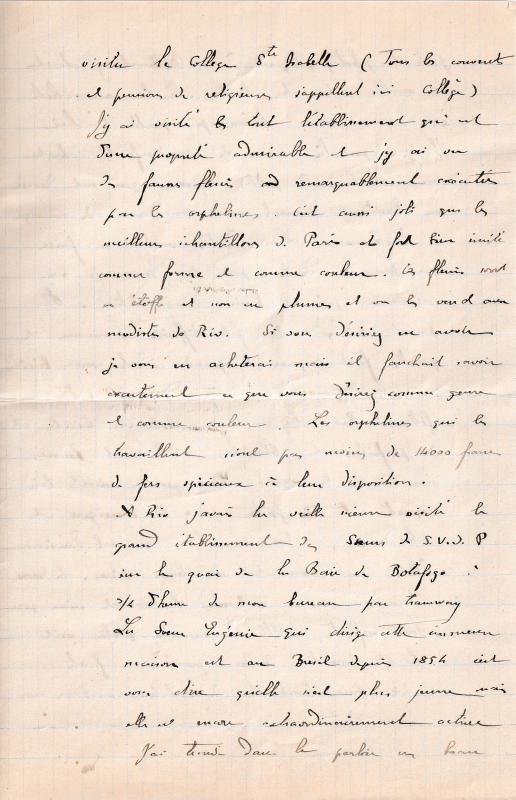 visiter le Collège Ste Isabelle (Tous les couvents
et pensions de religieuses s'appellent ici Collège)
J'y ai visité tout l'établissement qui est
d'une propreté admirable et j'y ai vu
des fausses fleurs remarquablement exécutées
par les orphelines. C'est aussi joli que les
meilleurs échantillons de Paris et fort bien imité
comme forme et comme couleur. Ces fleurs sont
en étoffe et non en plumes et on les vend aux
modistes de Rio. Si vous désiriez en avoir
je vous en achèterais mais il faudrait savoir
exactement ce que vous désirez comme genre
et comme couleur. Les orphelines qui les
travaillent n'ont pas moins de 14000 francs
de fers spéciaux à leur disposition.
A Rio j'avais la veille même visité le
grand établissement des Sœurs de S.V.d.P
sur le quai de la Baie de Botafogo à
3/4 d'heure de mon bureau par tramway
La Sœur Eugénie qui dirige cette immense
maison est au Brésil depuis 1854 c'est
vous dire qu'elle n'est plus jeune mais
elle est encore extraordinairement active
J'ai trouvé dans le parloir un beau